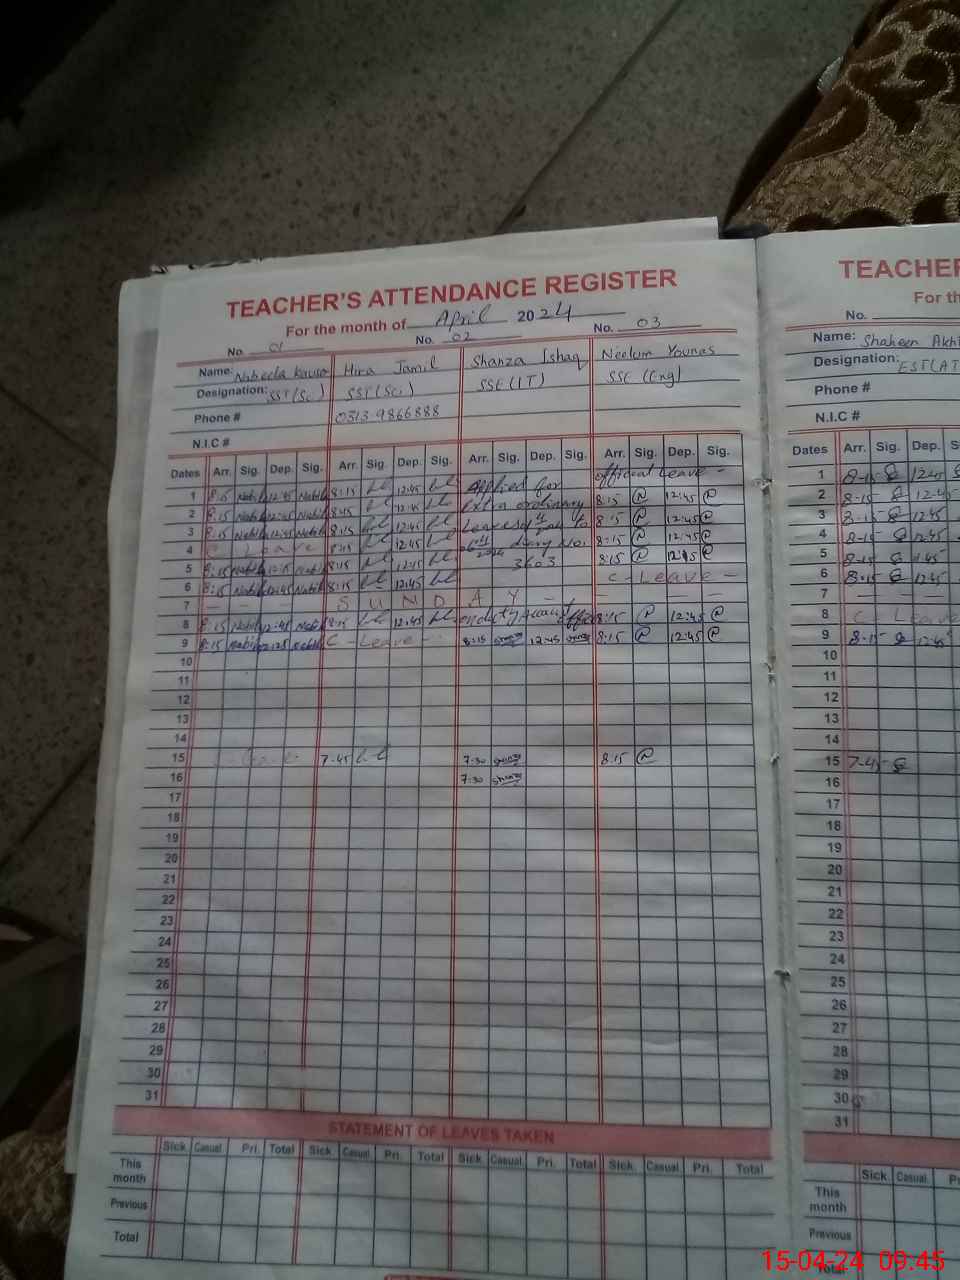 TEACHER'S ATTENDANCE REGISTER
For the month of April 2024
No. 01 No. 02 No. 03
Name: Nabeela Kausar Hira Jamil Shanza Ishaq Neelum Younas
Designation: SST(Sci) SST(Sci) SSE(IT) SSE (Eng)
Phone # 0313-9866888
N.I.C #
Dates Arr. Sig. Dep. Sig. Arr. Sig. Dep. Sig. Arr. Sig. Dep. Sig. Arr. Sig. Dep. Sig.
official Leave -
1 8:15 Nabil 12:45 Nabil 8:15 12:45 Applied for 8:15 12:45
2 8:15 Nabil 12:45 Nabil 8:15 12:45 Extra ordinary 8:15 12:45
3 8:15 Nabil 12:45 Nabil 8:15 12:45 8:15 12:45
4 C Leave 8:15 12:45 diary No. 8:15 12:45
5 8:15 Nabil 12:15 Nabil 8:15 12:45 3603
6 8:15 Nabil 12:45 Nabil 8:15 12:45 C - Leave -
7 - - - - S U N D A Y - -
8 8:15 Nabil 12:45 Nabil 8:15 12:45 8:15 12:45
9 8:15 Nabil 12:25 Nabil C - Leave - 8:15 12:45 8:15 12:45
10
11
12
13
14
15 Leave 7-45 7-30 8:15
16 7-30
17
18
19
20
21
22
23
24
25
26
27
28
29
30
31
STATEMENT OF LEAVES TAKEN
Sick Casual Pri. Total Sick Casual Pri. Total Sick Casual Pri. Total Sick Casual Pri. Total
This month
Previous
Total
TEACHER
For th
No.
Name: Shaheen Akh
Designation: EST(AT
Phone #
N.I.C #
Dates Arr. Sig. Dep. S
1 8-15 12:45
2 8-15 12-45
3 8-15 12:45
4 8-15 12:45
5 8-15 1:45
6 8:15 12:45
7 - - -
8 C Leave
9 8-15 12:45
10
11
12
13
14
15 7-45
16
17
18
19
20
21
22
23
24
25
26
27
28
29
30
31
Sick Casual P
This month
Previous
Total
15-04-24 09:45